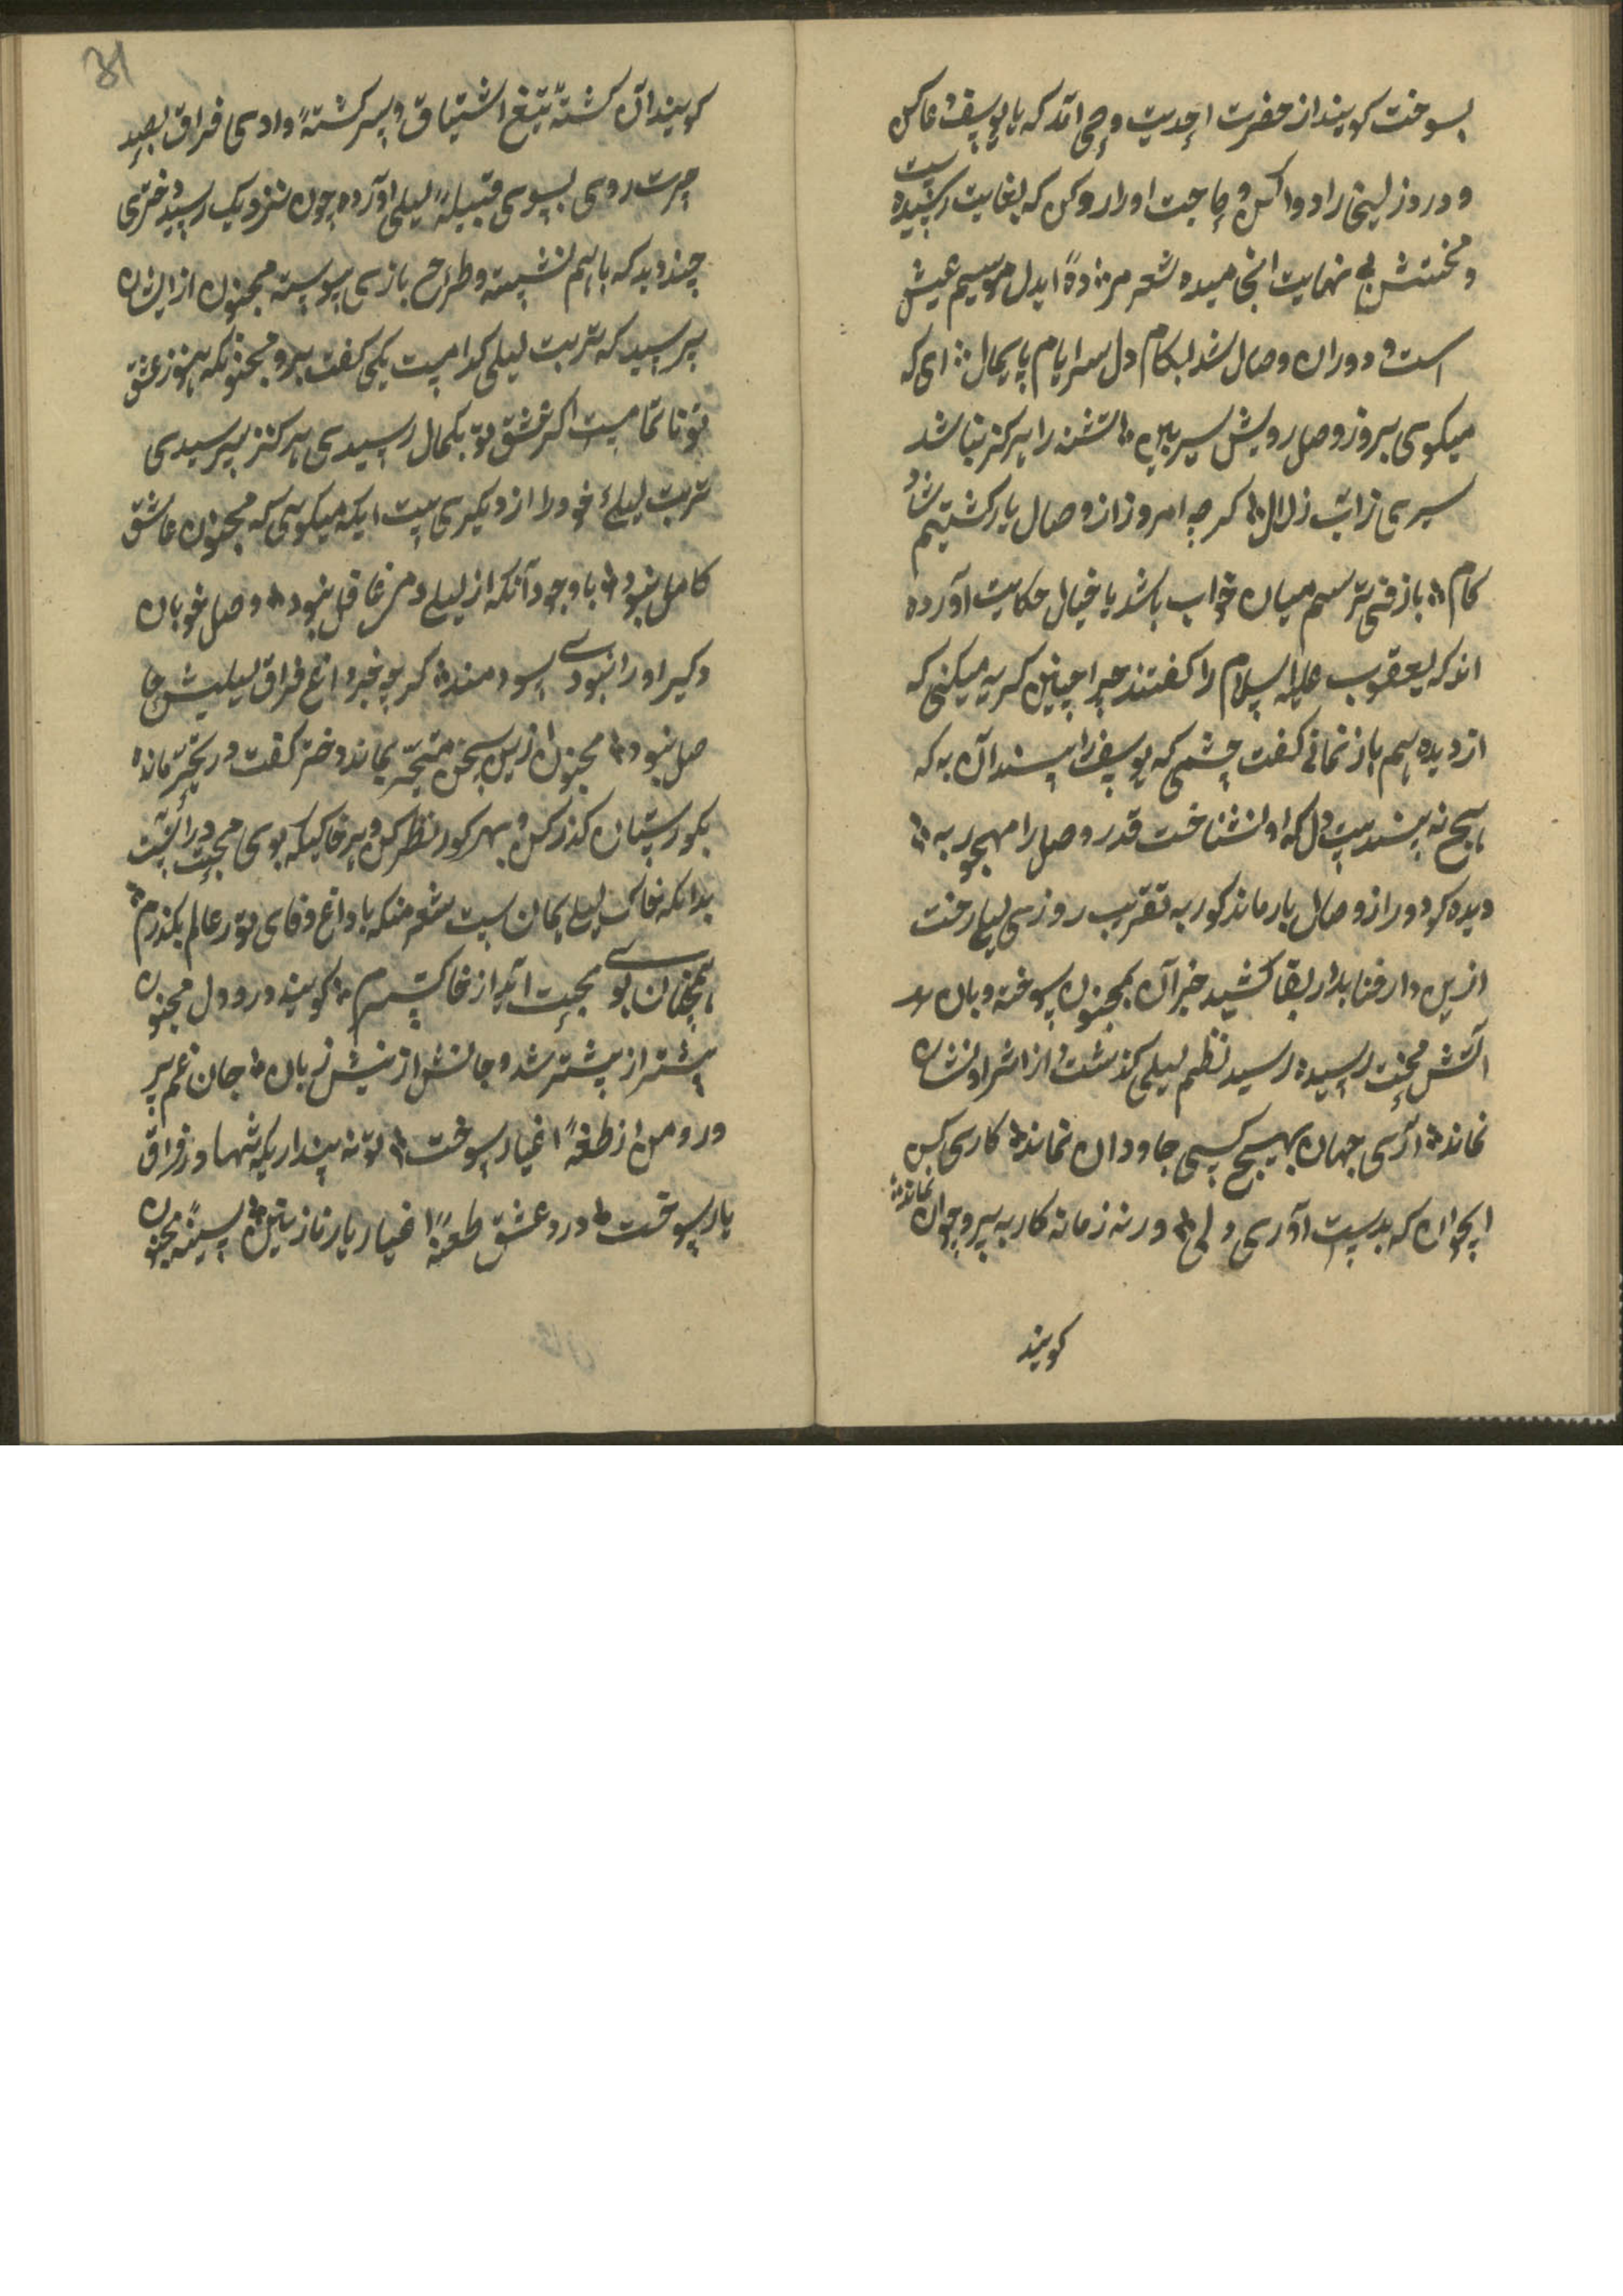 بسوخت کویند از حضرت احدیت وحی آمد که یا یوسف دعا کن
و درد زلیخا را دوا کن و حاجت او را روا کن که بغایت رسیده است
و محنتش بی نهایت انجامیده شعر مژدهٔ ایدل موسم عیش
است و دوران وصال شد بکام دل سرایام پایمال ای که
میکوی بروز وصل رویش سیر بین تشنه را هرکز نباشد
سیری از آب زلال کرچه امروز از وصال یار کشتیم شاد
کام باز فی ترسم میان خواب باشد یا خیال حکایت آورده
اند که یعقوب علیه السلام را کفتند چرا چنین کریه میکنی که
از دیده هم باز نمانی کفت چشمی که یوسف را بیند آن به که
هیچ نه بیند بیت دل که او نشناخت قدر وصل را مهجور به
دیده کو دور از وصال یار ماند کور به تقریب روزی لیلی رخت
ازین دار فنا بدار بقا کشید خبر آن بمجنون سوخته و بان
آتش محنت رسیده رسید نظم لیلی کذشت و از اثر او نشان
نماند آری جهان بهیچ کسی جاودان نماند کاری بکن
ایجوان که بدست آوری دلی ورنه زمانه کار به پیر و جوان نماند
کویند
31
کویند آن کشتهٔ تیغ اشتیاق و سرکشتهٔ وادی فراق بصد
حیرت روی بسوی قبیلهٔ لیلی آورده چون نزدیک رسید دختری
چند دید که باهم نشسته و طرح بازی پیوسته مجنون از ایشان
پرسید که تربت لیلی کدامست یکی کفت برو مجنون که هنوز عشق
تو ناتمامست اکر عشق تو بکمال رسیدی هرکز نپرسیدی
تربت لیلی خود را از دیکری بیت ایکه میکوئی که مجنون عاشق
کامل نبود باوجود آنکه از لیلی دمی غافل نبود وصل خوبان
دکر او را نبودی سودمند کرچه جز داغ فراق لیلیش حا
صل نبود مجنون ازین سخن متحیر بماند دختر کفت در تحیر مانده
بکورستان کذر کن و بهر کور نظر کن و هر خاکیکه بوی محبت در آنست
بدانکه خاک لیلی همانست شعر منکه با داغ وفای تو ز عالم بکذرم
همچنان بوی محبت آید از خاکسترم کویند درد دل مجنون
بیشتر از پیشتر شد و جانش از نیش زبان جان غم پر
ورد من از طعنهٔ اغیار سوخت تو نه پنداریکه تنها در فراق
یار سوخت درد عشق طعنهٔ اغیار یار نازنین سینهٔ مجنون